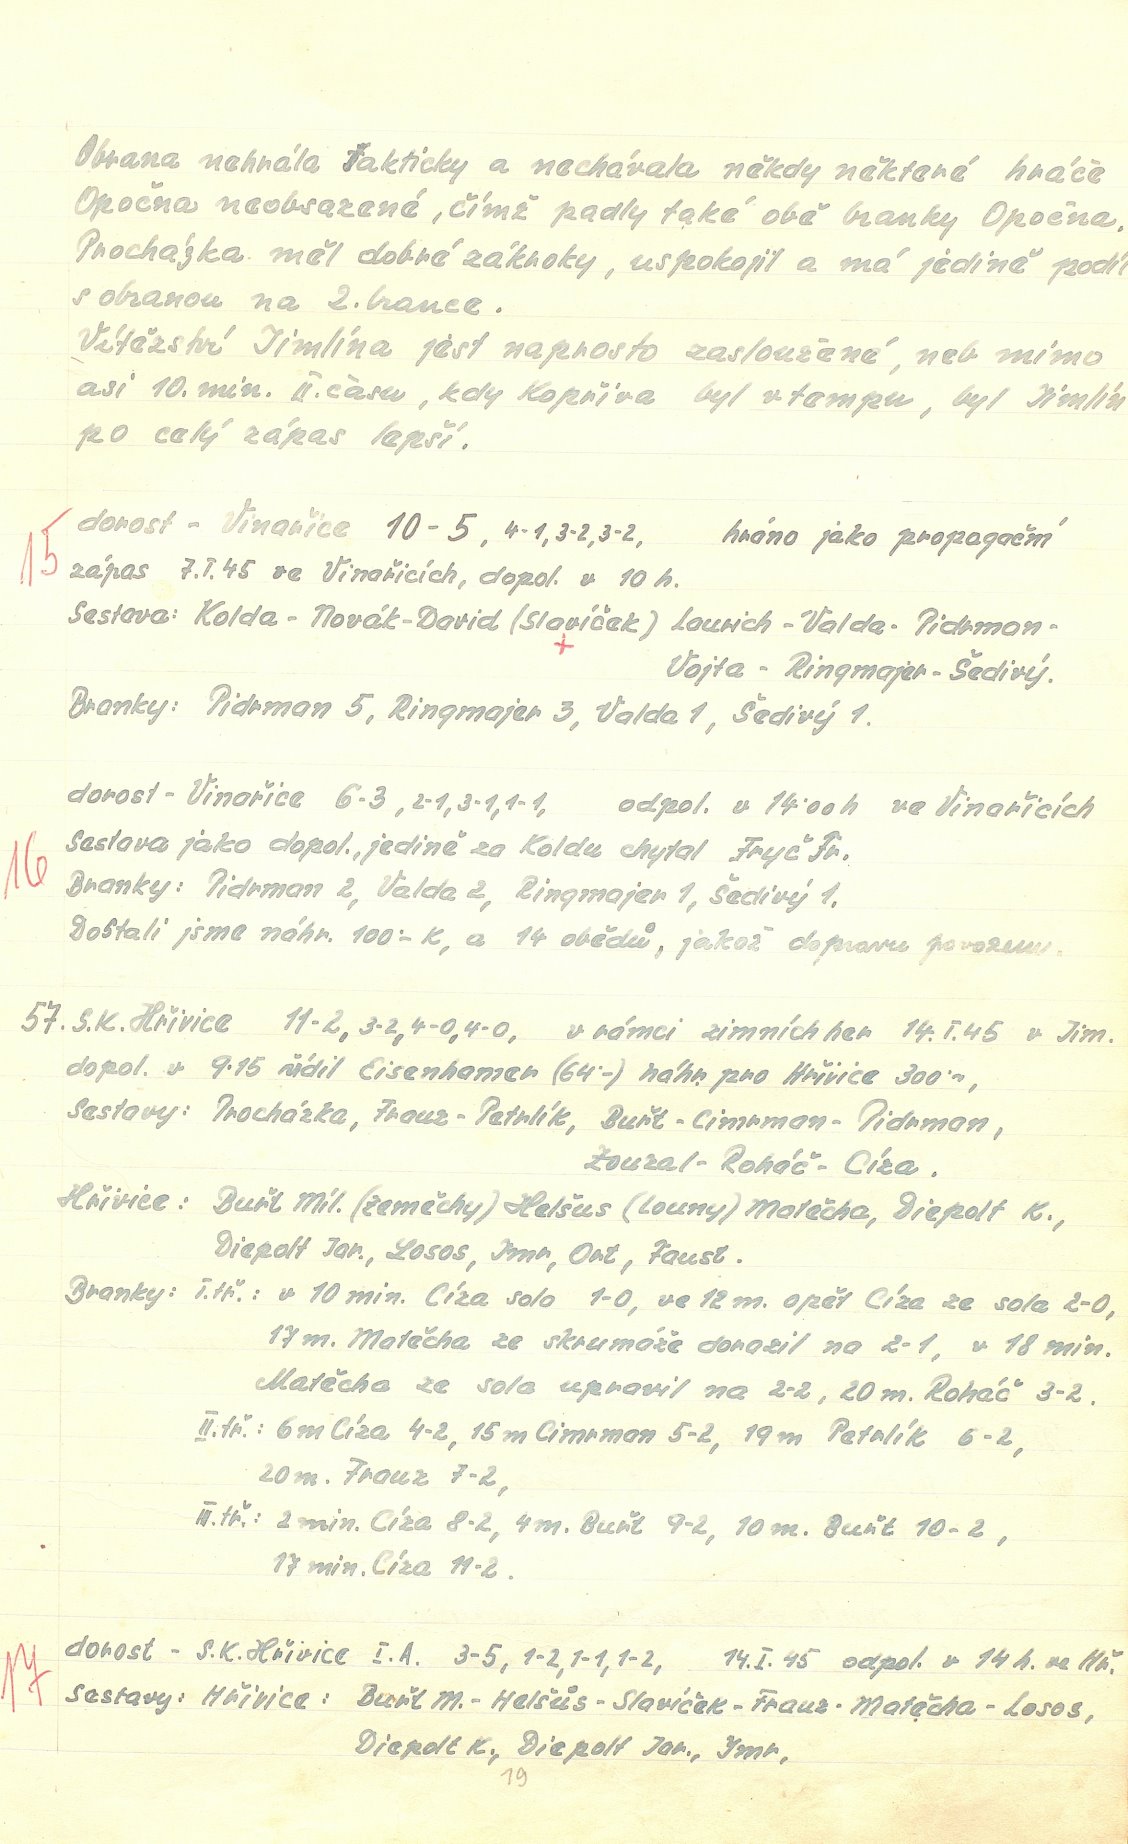 Obrana nehrála takticky a nechávala někdy některé hráče
Opočna neobsazené, čímž padly také obě branky Opočna.
Procházka měl dobré zákroky, uspokojil a má jedině podíl
s obranou na 2. brance.
Vítězství Jimlína jest naprosto zasloužené, neb mimo
asi 10. min. II. času, kdy Kopřiva byl v tempu, byl Jimlín
po celý zápas lepší.
15 dorost - Vinařice 10-5, 4-1, 3-2, 3-2, hráno jako propagační
zápas 7.I.45 ve Vinařicích, dopol. v 10 h.
Sestava: Kolda - Novák - David (Slavíček) Laurich - Valda - Pidrman -
+
Vojta - Ringmajer - Šedivý.
Branky: Pidrman 5, Ringmajer 3, Valda 1, Šedivý 1.
dorost - Vinařice 6-3, 2-1, 3-1, 1-1, odpol. v 14·00 h ve Vinařicích
16 Sestava jako dopol., jedině za Koldu chytal Fryč Fr.
Branky: Pidrman 2, Valda 2, Ringmajer 1, Šedivý 1.
Dostali jsme náhr. 100·- K, a 14 obědů, jakož dopravu povozem.
57. S.K. Hřivice 11-2, 3-2, 4-0, 4-0, v rámci zimních her 14.I.45 v Jim.
dopol. v 9·15 řídil Eisenhamer (64·-) náhr. pro Hřivice 300·-,
Sestavy: Procházka, Frauz - Petrlík, Buřt - Cimrman - Pidrman,
Zouzal - Roháč - Cíza.
Hřivice: Buřt Mil. (Zeměchy) Helšus (Louny) Matěcha, Diepolt K.,
Diepolt Jar., Losos, Imr, Ort, Faust.
Branky: I.tř.: v 10 min. Cíza solo 1-0, ve 12 m. opět Cíza ze sola 2-0,
17 m. Matěcha ze skrumáže dorazil na 2-1, v 18 min.
Matěcha ze sola upravil na 2-2, 20 m. Roháč 3-2.
II.tř.: 6 m Cíza 4-2, 15 m Cimrman 5-2, 19 m Petrlík 6-2,
20 m. Frauz 7-2,
III.tř.: 2 min. Cíza 8-2, 4 m. Buřt 9-2, 10 m. Buřt 10-2,
17 min. Cíza 11-2.
17 dorost - S.K. Hřivice I.A. 3-5, 1-2, 1-1, 1-2, 14.I.45 odpol. v 14 h. ve Hř.
Sestavy: Hřivice: Buřt M. - Helšůs - Slavíček - Frauz - Matěcha - Losos,
Diepolt K., Diepolt Jar., Imr,
19